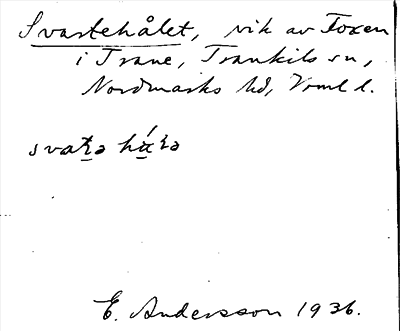 Svartehålet, vik av Foxen
i Trane, Trankils sn,
Nordmarks hd, Vrml l.
svaꞧ̱ə há̱ꞧə
E. Andersson 1936.